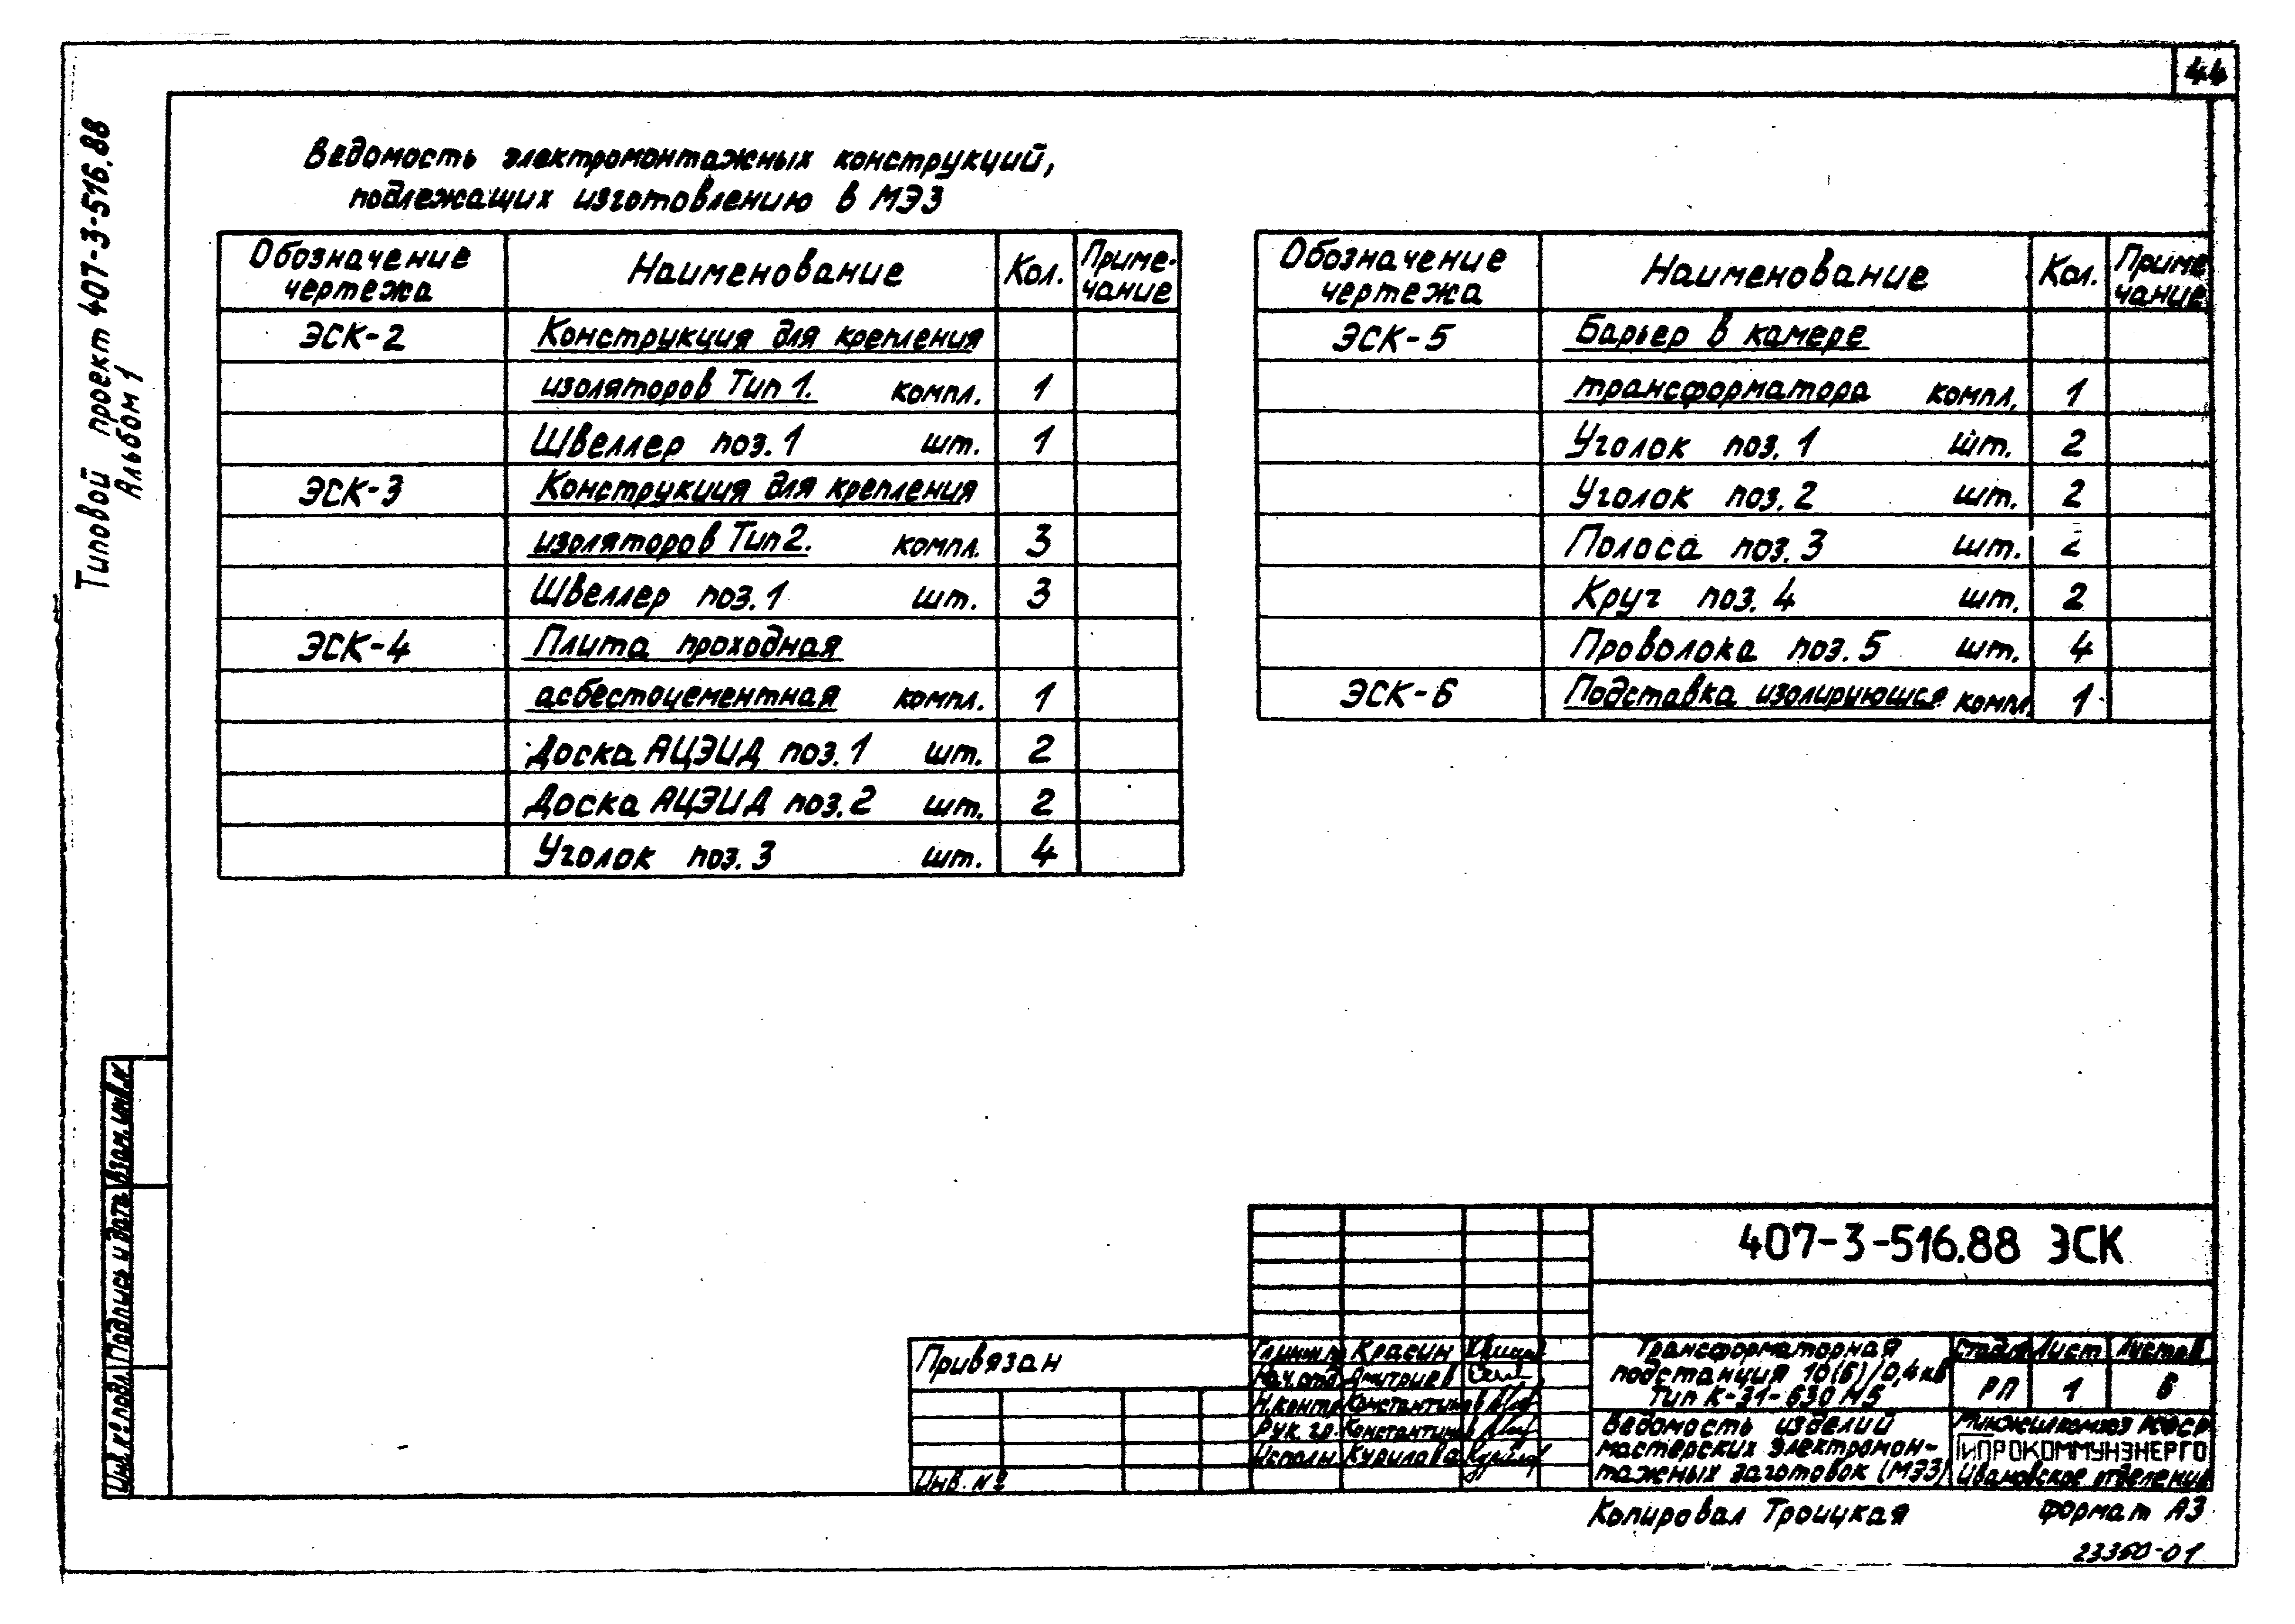 44
Типовой проект 407-3-516.88
Альбом 1
Ведомость электромонтажных конструкций,
подлежащих изготовлению в МЭЗ
Обозначение чертежа Наименование Кол. Приме-чание
ЭСК-2 Конструкция для крепления
изоляторов Тип 1. компл. 1
Швеллер поз. 1 шт. 1
ЭСК-3 Конструкция для крепления
изоляторов Тип 2. компл. 3
Швеллер поз. 1 шт. 3
ЭСК-4 Плита проходная
асбестоцементная компл. 1
Доска АЦЭИД поз. 1 шт. 2
Доска АЦЭИД поз. 2 шт. 2
Уголок поз. 3 шт. 4
Обозначение чертежа Наименование Кол. Приме чание
ЭСК-5 Барьер в камере
трансформатора компл. 1
Уголок поз. 1 шт. 2
Уголок поз. 2 шт. 2
Полоса поз. 3 шт. 2
Круг поз. 4 шт. 2
Проволока поз. 5 шт. 4
ЭСК-6 Подставка изолирующая компл. 1
Взам. инв. №
Подпись и дата
Инв. № подл.
407-3-516.88 ЭСК
Привязан
Инв. №
Гл. инж. пр. Красин
Нач. отд. Дмитриев
Н. контр. Константинов
Рук. гр. Константинов
Исполн. Курилова
Трансформаторная
подстанция 10(6)/0,4 кВ
Тип К-31-630 М5
Стадия Лист Листов
РП 1 6
Ведомость изделий
мастерских электромон-
тажных заготовок (МЭЗ)
Минжилкомхоз РСФСР
ГИПРОКОММУНЭНЕРГО
Ивановское отделение
Копировал Троицкая формат А3
23350-01